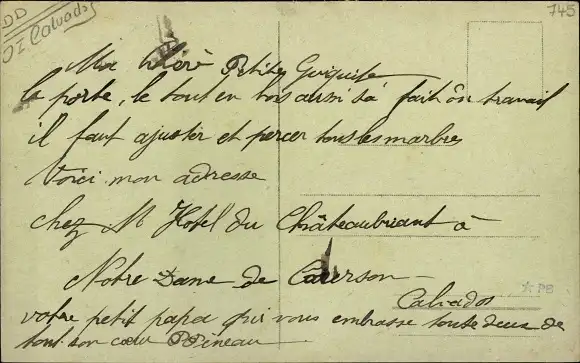 DD
OI Calvados
745
Ma chère Petite Guiguite
la porte, le tout en bois aussi sa fait ôn travail
il faut ajuster et percer tous les marbres
Voici mon adresse
chez M Hotel du Châteaubriant à
Notre Dame de Courson
Calvados
votre petit papa qui vous embrasse toute deus de
tout son cœur P Pineau
PB